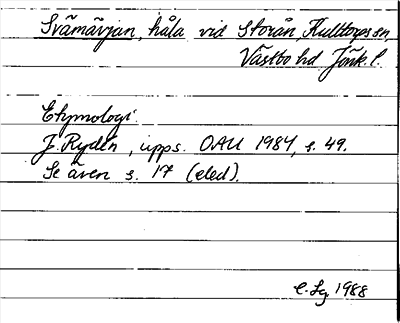 Svämävjan, håla vid Storån, Kulltorps sn
Västbo hd Jönk. l.
Etymologi.
J. Rydén, upps. OAU 1984, s. 49.
Se även s. 17 (eled).
C. Lg 1988